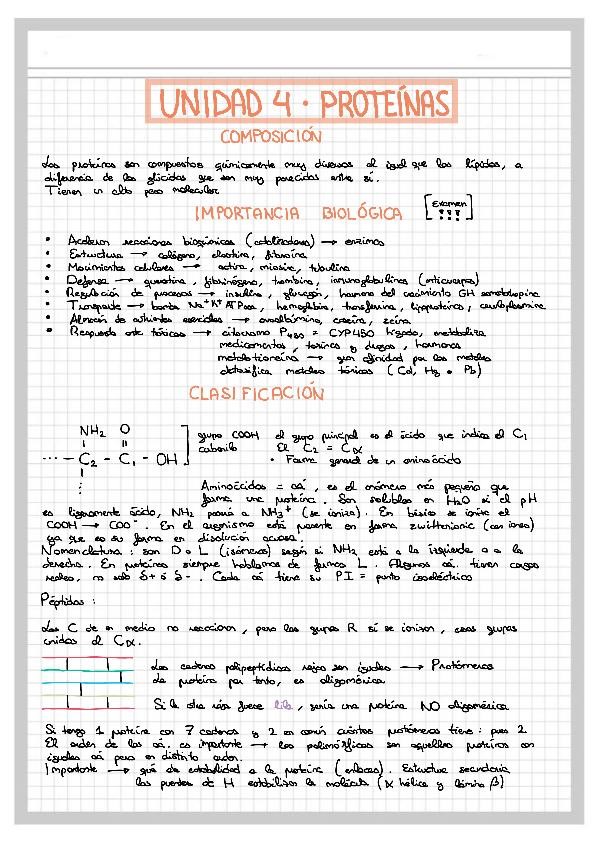 UNIDAD 4 · PROTEÍNAS
COMPOSICIÓN
Las proteínas son compuestos químicamente muy diversos al igual que los lípidos, a
diferencia de los glícidos que son muy parecidos entre sí.
Tienen un alto peso molecular
IMPORTANCIA BIOLÓGICA [Examen !!!]
• Aceleran reacciones bioquímicas (catalizadoras) → enzimas
• Estructura → colágeno, elastina, fibroína
• Movimientos celulares → actina, miosina, tubulina
• Defensa → queratina, fibrinógeno, trombina, inmunoglobulinas (anticuerpos)
• Regulación de procesos → insulina, glucagón, hormona del crecimiento GH somatotropina
• Transporte → bomba Na⁺K⁺ATPasa, hemoglobina, transferrina, lipoproteínas, ceruloplasmina
• Almacén de nutrientes esenciales → ovoalbúmina, caseína, zeína
• Respuesta ante tóxicos → citocromo P450 = CYP450 hígado, metaboliza
medicamentos, toxinas y drogas, hormonas
metalotioneína → gran afinidad por los metales
detoxifica metales tóxicos (Cd, Hg o Pb)
CLASIFICACIÓN
NH₂ O
··· — C₂ — C₁ — OH
grupo COOH el grupo principal es el ácido que indica el C₁
carbonilo El C₂ = Cα
• Forma general de un aminoácido
Aminoácidos = aá, es el monómero más pequeño que
forma una proteína. Son solubles en H₂O si el pH
es ligeramente ácido, NH₂ pasará a NH₃⁺ (se ioniza). En básico se ioniza el
COOH → COO⁻. En el organismo está presente en forma zwitterionic (con iones)
ya que es su forma en disolución acuosa.
Nomenclatura: son D o L (isómeros) según si NH₂ está a la izquierda o a la
derecha. En proteínas siempre hablamos de forma L. Algunos aá. tienen cargas
reales, no solo δ+ o δ-. Cada aá tiene su PI = punto isoeléctrico
Péptidos:
Los C de en medio no reaccionan, pero los grupos R sí se ionizan, esos grupos
unidos al Cα.
Las cadenas polipeptídicas rojas son iguales → Protómeros
la proteína por tanto, es oligomérica
Si la otra roja fuese lila, sería una proteína NO oligomérica
Si tengo 1 proteína con 7 cadenas y 2 en común cuántos protómeros tiene: pues 2
El orden de los aá. es importante → los polimórficos son aquellas proteínas con
iguales aá pero en distinto orden.
Importante → qué da estabilidad a la proteína (enlaces). Estructura secundaria
los puentes de H estabilizan la molécula (α hélice y lámina β)